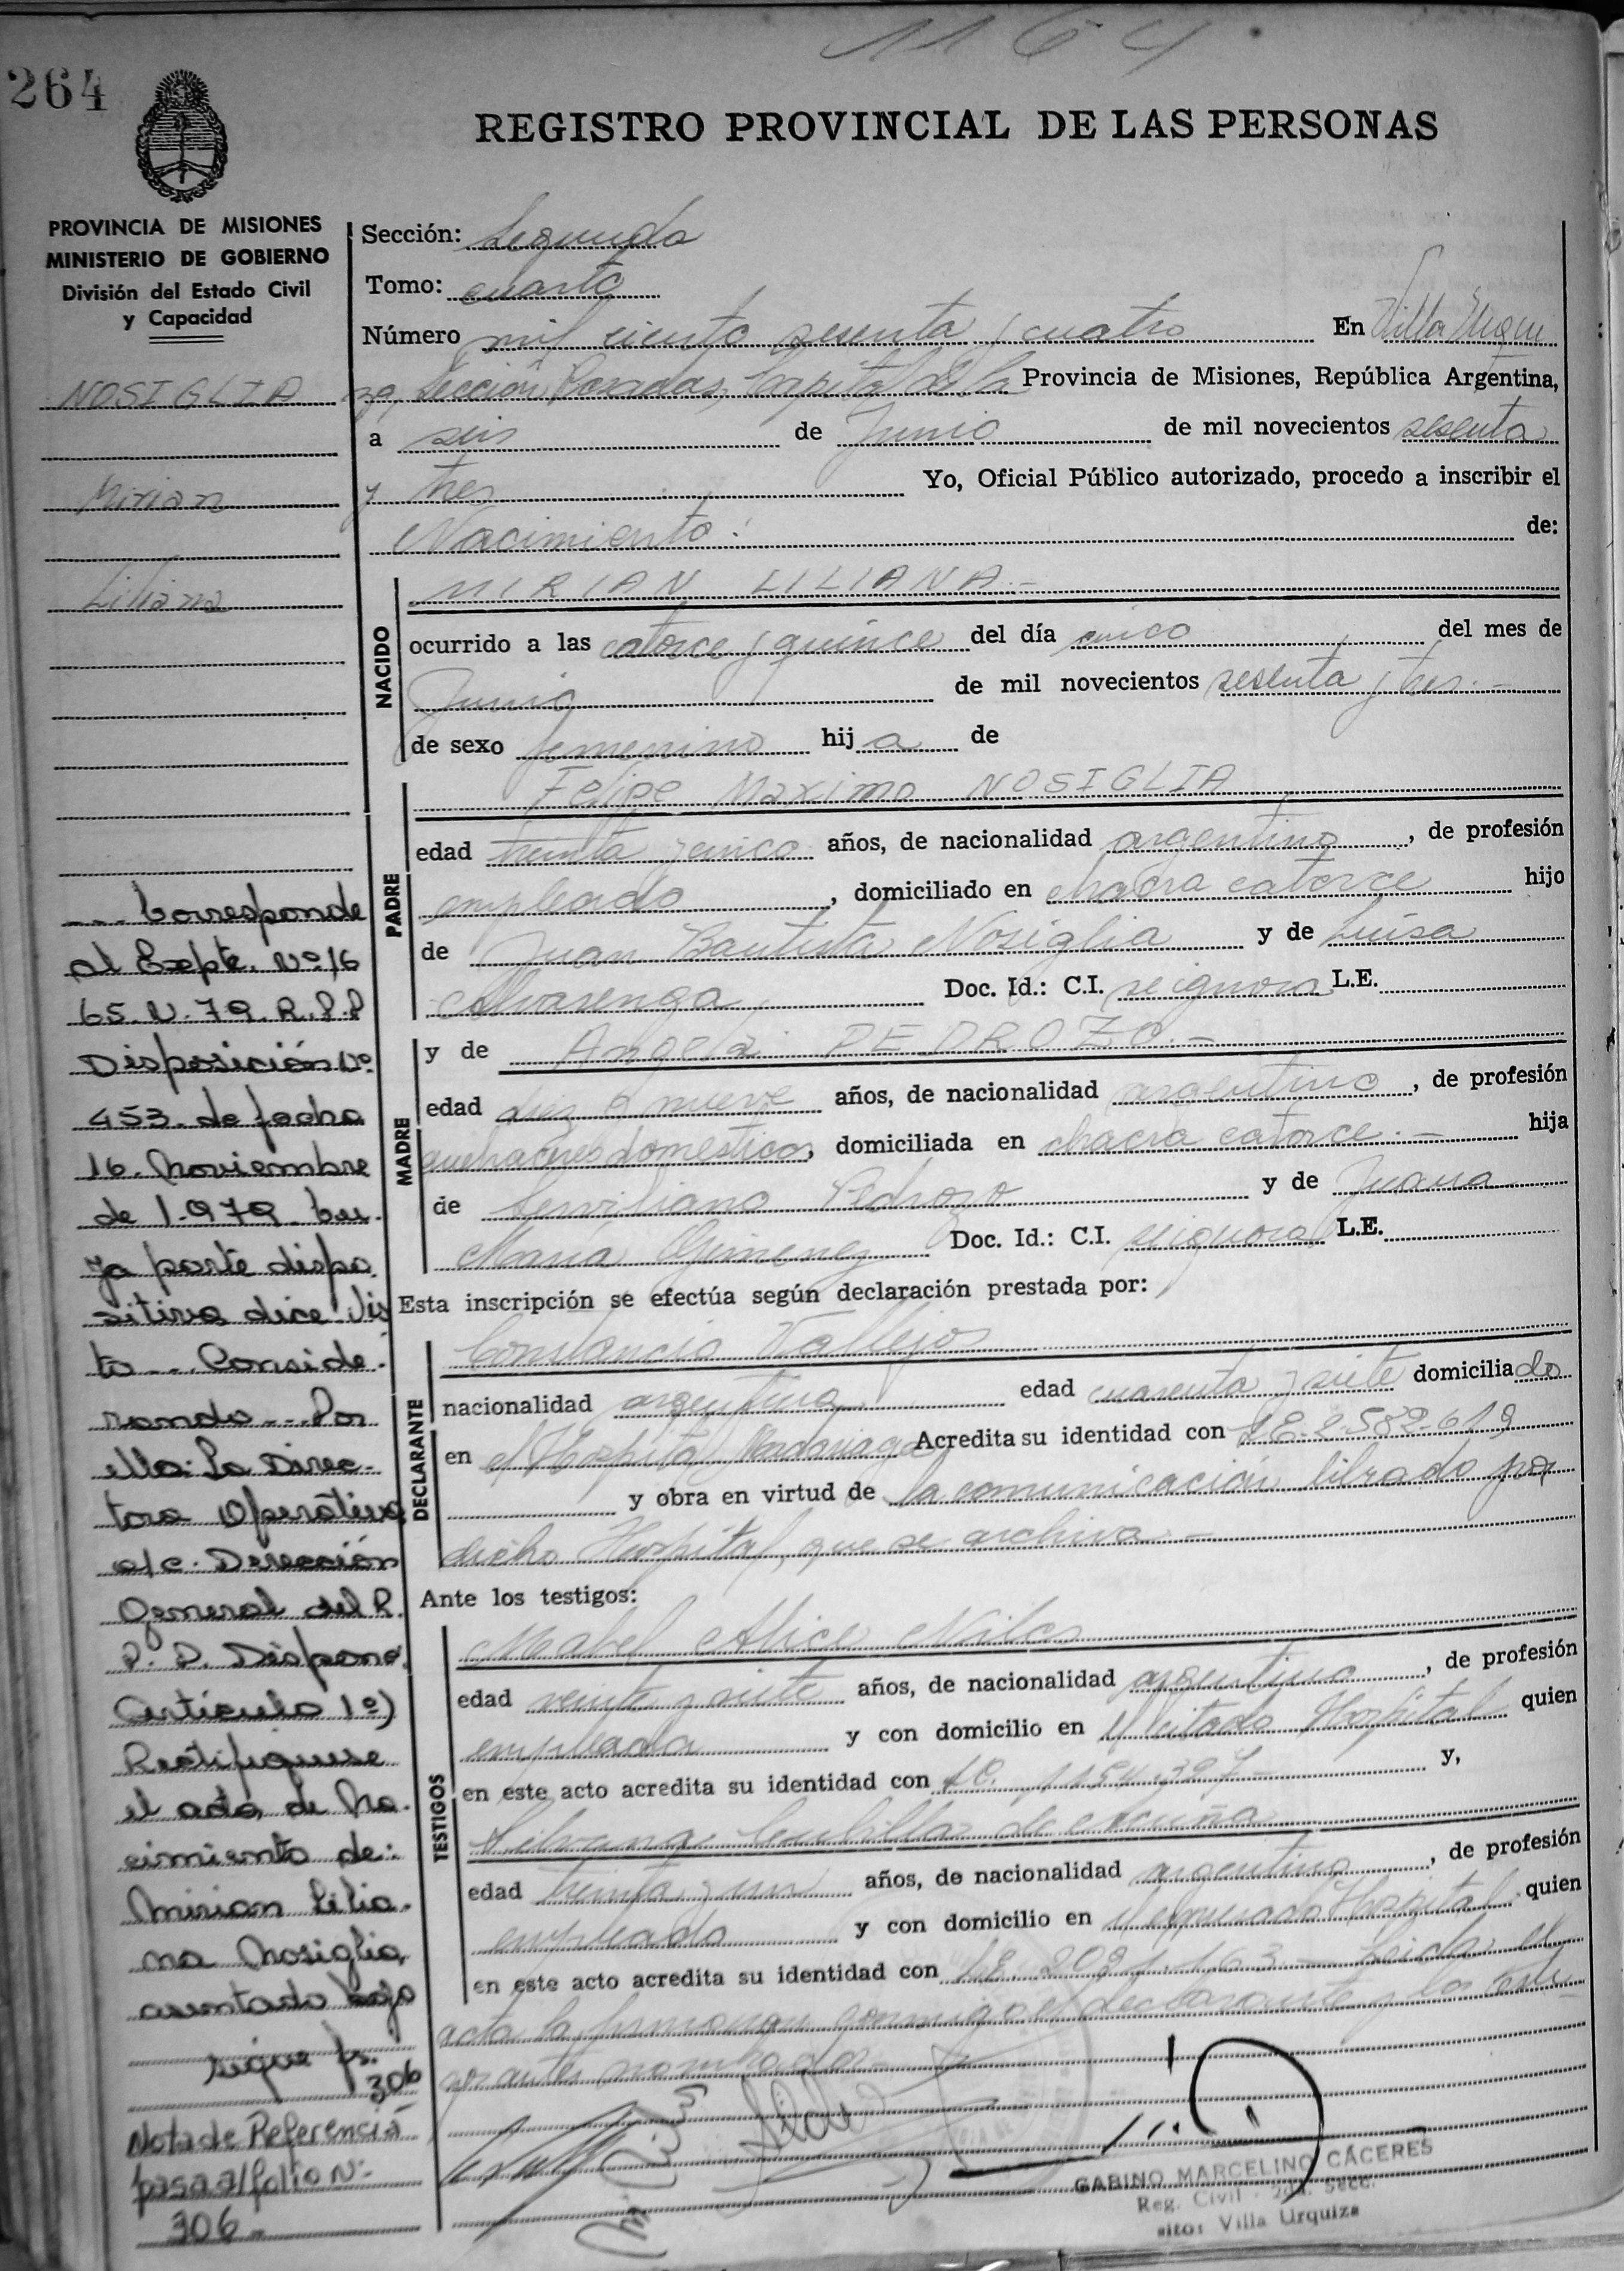 1164
264
REGISTRO PROVINCIAL DE LAS PERSONAS
PROVINCIA DE MISIONES
MINISTERIO DE GOBIERNO
División del Estado Civil
y Capacidad
NOSIGLIA
Mirian
Liliana
Sección: Segunda
Tomo: cuarto
Número mil ciento sesenta y cuatro En Villa Urqui
za, Sección Posadas, Capital de la Provincia de Misiones, República Argentina,
a seis de Junio de mil novecientos sesenta
y tres Yo, Oficial Público autorizado, procedo a inscribir el
Nacimiento: de:
NACIDO
MIRIAN LILIANA.-
ocurrido a las catorce y quince del día cinco del mes de
Junio de mil novecientos sesenta y tres.-
de sexo femenino hija de
PADRE
Felipe Maximo NOSIGLIA
edad treinta y cinco años, de nacionalidad argentino, de profesión
empleado, domiciliado en chacra catorce hijo
de Juan Bautista Nosiglia y de Luisa
Alvarenga Doc. Id.: C.I. se ignora L.E.
MADRE
y de Angela PEDROZO.-
edad diez y nueve años, de nacionalidad argentina, de profesión
quehaceres domesticos, domiciliada en chacra catorce.- hija
de Serviliano Pedrozo y de Juana
María Gimenez Doc. Id.: C.I. se ignora L.E.
Esta inscripción se efectúa según declaración prestada por:
DECLARANTE
Constancio Vallejos
nacionalidad argentina edad cuarenta y siete domiciliado
en el Hospital Madariaga Acredita su identidad con LE. 2.582.619
y obra en virtud de la comunicación librado por
dicho Hospital, que se archiva.-
Ante los testigos:
TESTIGOS
Mabel Alice
edad veinte y siete años, de nacionalidad argentina, de profesión
empleada y con domicilio en el citado Hospital quien
en este acto acredita su identidad con y,
de
edad treinta y un años, de nacionalidad argentina, de profesión
empleada y con domicilio en el expresado Hospital quien
en este acto acredita su identidad con Leida el
acta la firman conmigo el declarante y los testi
gos antes nombrados
GABINO MARCELINO CÁCERES
Reg. Civil 2da. Secc.
sito: Villa Urquiza
--- Corresponde
al Expte. Nº 16
65.N.79.R.P.P
Disposición Nº
453. de fecha
16. Noviembre
de 1.979. cu
ya parte dispo
sitiva dice: Vis
to --- Conside.
rando --- Por
ello: La Direc-
tora Operativa
a/c. Dirección
General del R.
P. P. Dispone
Articulo 1º)
Rectifiquese
el acta de Na.
cimiento de:
Mirian Lilia.
na Nosiglia,
asentado bajo
sigue fs.
306
Nota de Referencia
pasa al folio Nº
306-